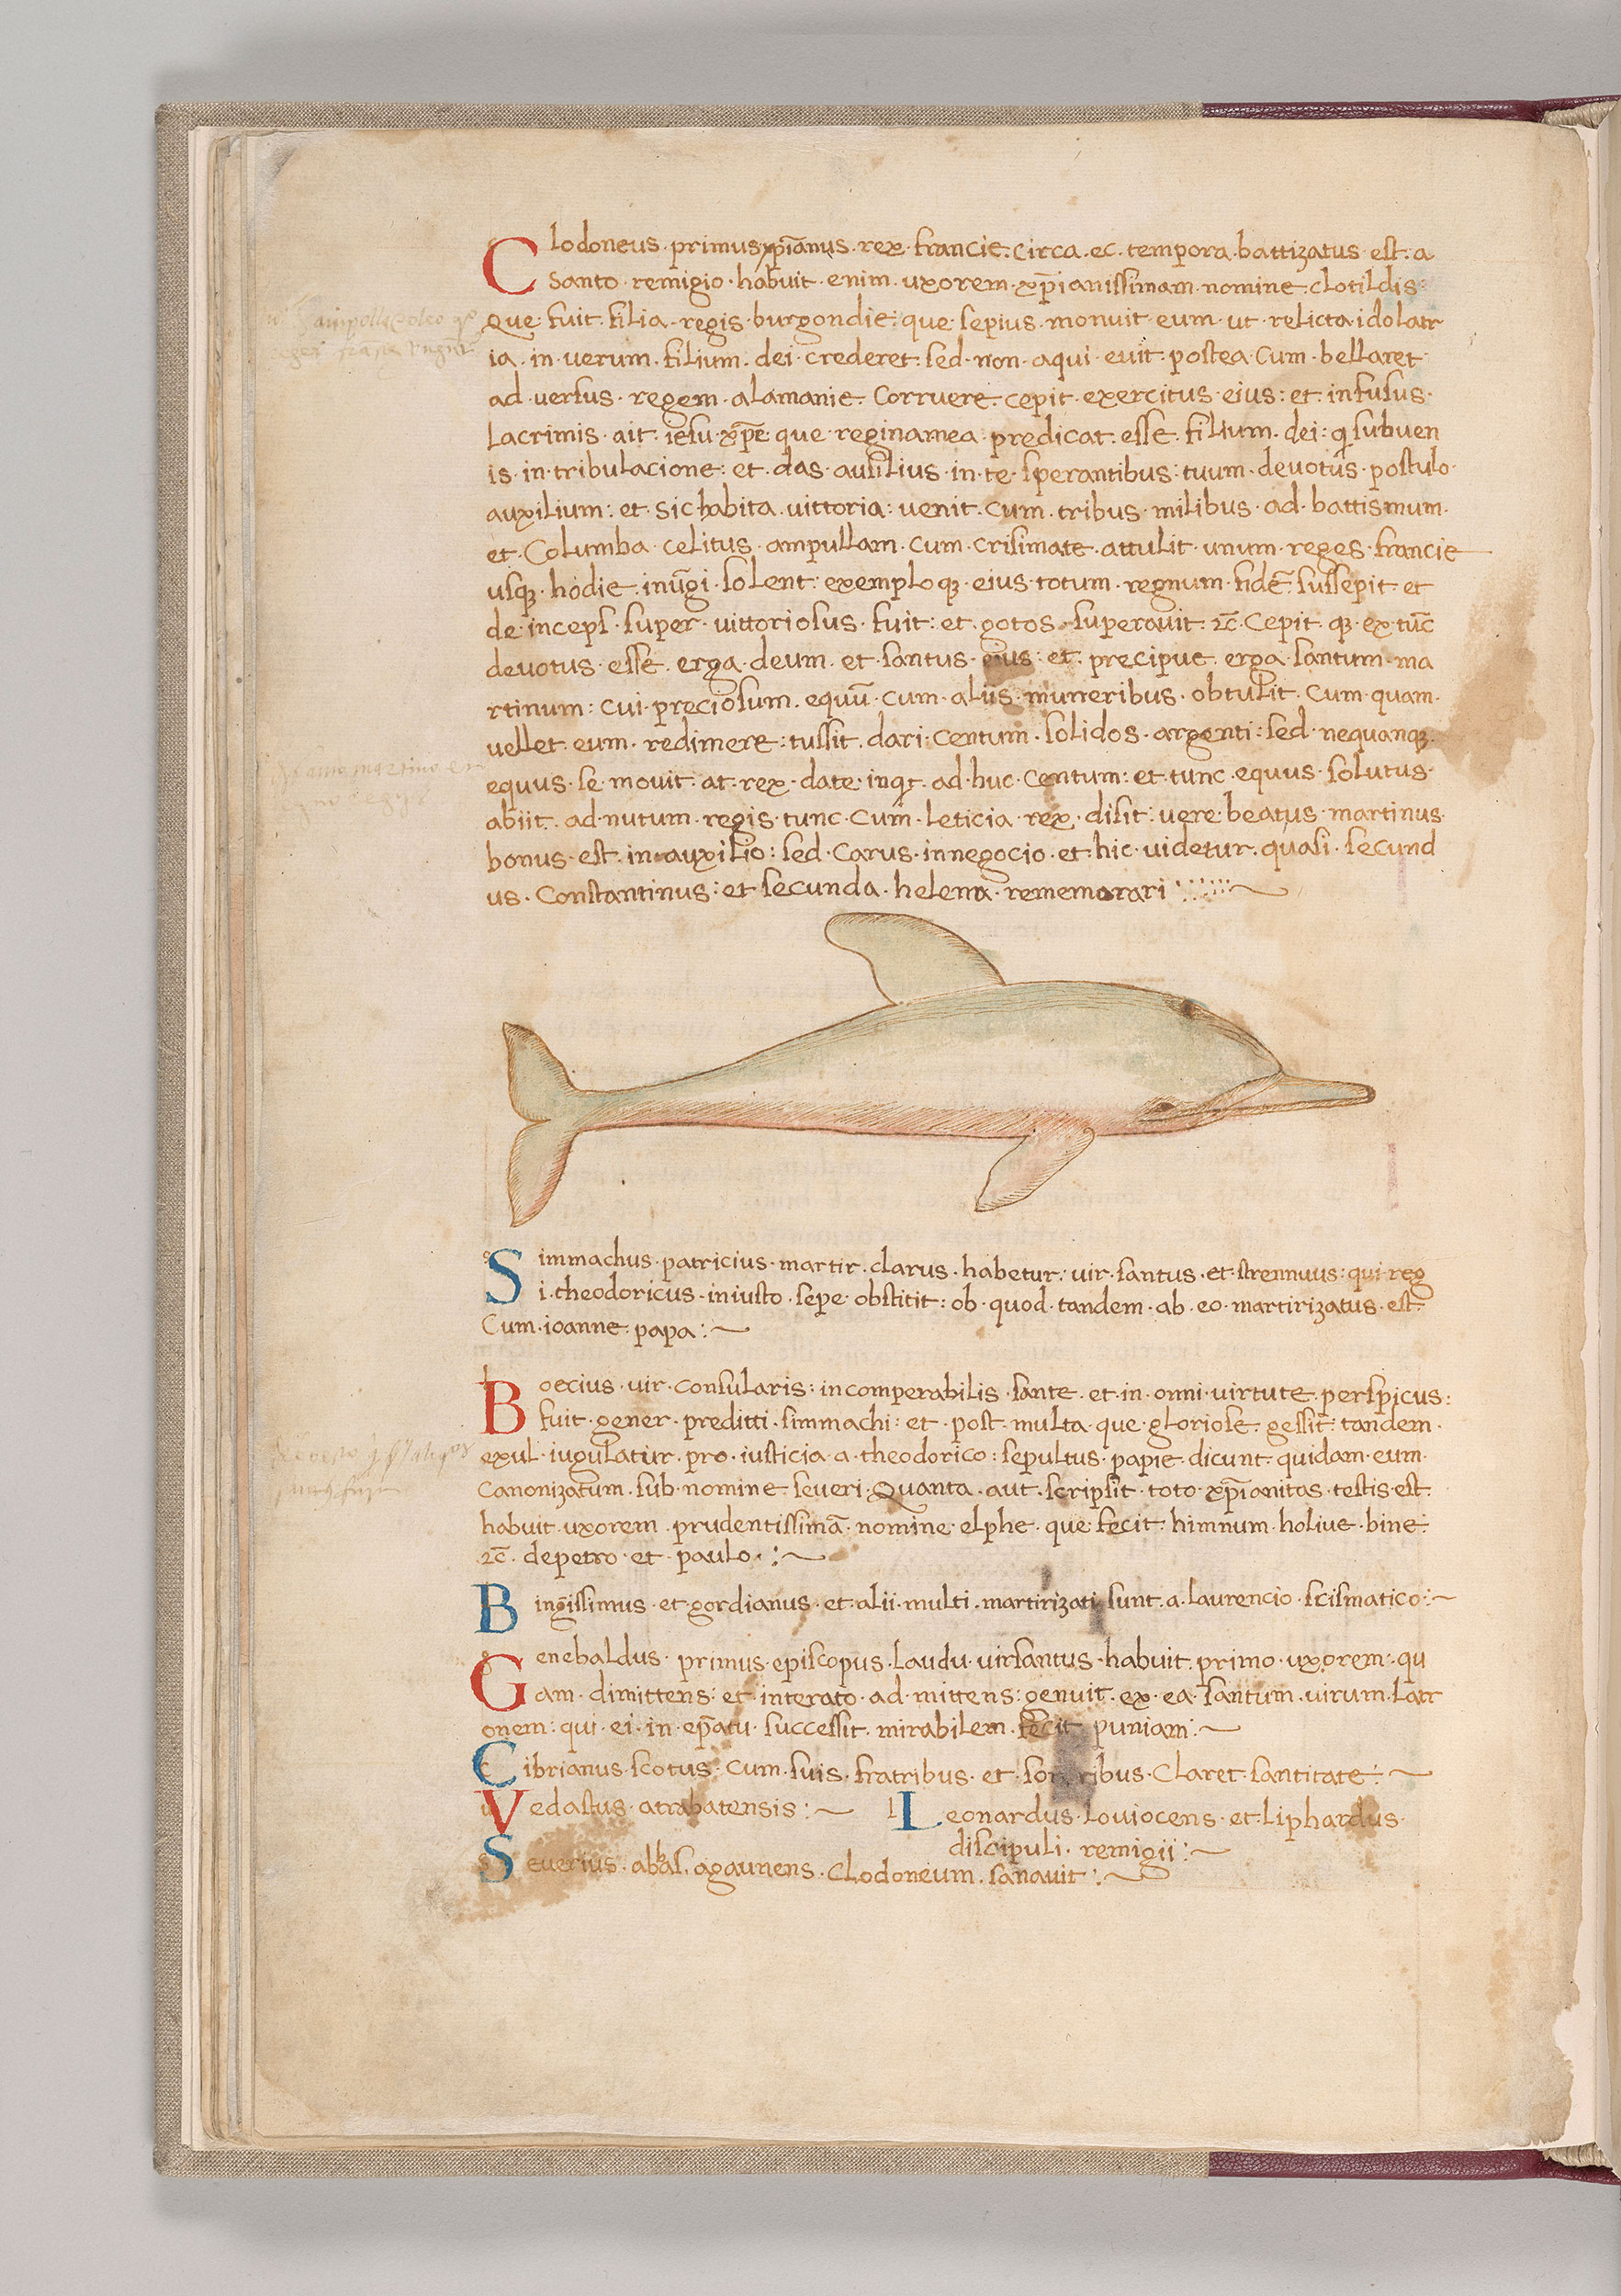 Clodoneus · primus xp̄ianus · rex · francie · circa · ec · tempora · battizatus · est · a
Santo · remigio · habuit · enim · uxorem · xp̄ianissimam · nomine · clotildis
Que · fuit · filia · regis · burgondie : que · sepius · monuit · eum · ut · relicta · idolatr
ia · in · verum · filium · dei · crederet · sed · non · aqui · evit · postea · Cum · bellaret
ad · versus · regem · alamanie · Corruere · cepit · exercitus · eius : et · infusus ·
lacrimis · ait · iesu · xp̄e · que · regina mea · predicat · esse · filium · dei : q subuen
is · in · tribulacione : et · das · ausilius · in · te · sperantibus : tuum · devotus · postulo ·
auxilium : et · sic habita · vittoria : venit · Cum · tribus · milibus · ad · battismum ·
et · Columba · celitus · ampullam · cum · crisimate · attulit · unum · reges · francie
usqȝ · hodie · inūgi · solent : exemplo qȝ · eius · totum · regnum · fidē · sussepit · et
de · inceps · super · vittoriosus · fuit : et · gotos · superavit · ⁊c̄ · Cepit · qȝ · ex · tūc
devotus · esse · erga · deum · et · santus · eius : et · precipue · erga · santum · ma
rtinum : cui · preciosum · equū · cum · aliis · muneribus · obtulit · Cum · quam ·
vellet · eum · redimere : iussit · dari · Centum · solidos · argenti : sed · nequanqȝ ·
equus · se · movit · at · rex · date · inqt · ad · huc · Centum : et · tunc · equus · solutus ·
abiit · ad · nutum · regis · tunc · Cum · leticia · rex · disit : vere · beatus · martinus ·
bonus · est · in · auxilio : sed · Carus · in negocio · et · hic · videtur · quasi · secund
us · Constantinus : et secunda · helena · rememorari
Simmachus · patricius · martir · clarus · habetur : vir · santus · et · strennuus : qui reg
i · theodoricus · iniusto · sepe · obstitit : ob · quod · tandem · ab · eo · martirizatus · est ·
Cum · ioanne · papa :~
Boecius · vir · Consularis : incomperabilis · sante · et · in · onni · virtute · perspicus :
fuit · gener · preditti · simmachi : et · post · multa · que · gloriose · gessit : tandem ·
exul · iugulatur · pro · iusticia · a · theodorico : sepultus · papie · dicunt · quidam · eum ·
Canonizatum · sub · nomine · severi · Quanta · aut · scripsit · toto · xp̄ianitas · testis · est ·
habuit · uxorem · prudentissimā · nomine · elphe · que · fecit · himnum · holive · bine :
⁊c̄ · de petro · et · paulo · :~
Bingissimus · et · gordianus · et · alii · multi · martirizati · sunt · a · laurencio · scismatico :~
Genebaldus · primus · episcopus · laudu · vir santus · habuit · primo · uxorem · qu
am · dimittens : et · interato · ad · mittens : genuit · ex · ea · santum · virum · latr
onem : qui · ei · in · ep̄atu · successit · mirabilem · fecit · puniam :~
Cibrianus · scotus : cum · suis · fratribus · et · sororibus · Claret · santitate :~
Vedastus · atrabatensis :~
Leonardus · loviocens · et · liphardus ·
discipuli · remigii :~
Severius · abbas · agaunens · Clodoneum · sanavit :~